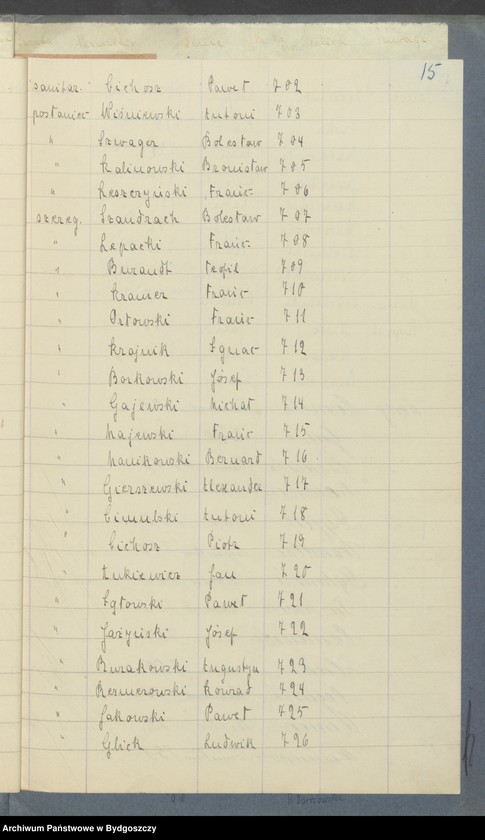 15
sanitar. Cichosz Paweł 702
posłaniec Wiśniewski Antoni 703
" Szwager Bolesław 704
" Kalinowski Bronisław 705
" Leszczyński Franc. 706
szereg. Szandrach Bolesław 707
" Lepacki Franc. 708
" Burandt Teofil 709
" Kramer Franc 710
" Orłowski Franc 711
" Krajnik Ignac 712
" Borkowski Józef 713
" Gajewski Michał 714
" Majewski Franc 715
" Manikowski Bernard 716
" Gierszewski Alexander 717
" Antoni 718
" Cichosz Piotr 719
" Łukiewicz Jan 720
" Igłowski Paweł 721
" Jażyński Józef 722
" Burakowski Augustyn 723
" Konrad 724
" Jakowski Paweł 725
" Glick Ludwik 726
Archiwum Państwowe w Bydgoszczy